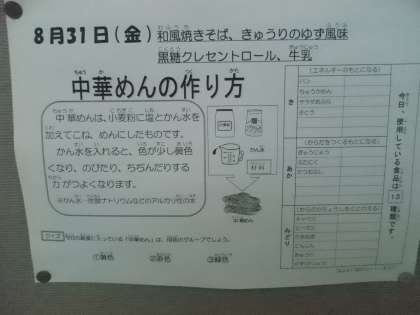 8月31日(金) 和風焼きそば、きゅうりのゆず風味
黒糖クレセントロール、牛乳
中華めんの作り方
中華めんは、小麦粉に塩とかん水を
加えてこね、めんにしたものです。
かん水を入れると、色が少し黄色
くなり、のびたり、ちぢんだりする
力がつよくなります。
※かん水…炭酸ナトリウムなどのアルカリ性の水
かん水
材料
中華めん
クイズ 今日の給食に入っている「中華めん」は、何色のグループでしょう。
①黄色 ②赤色 ③緑色
今日、使用している食品は
種類です。
き
(エネルギーのもとになる)
パン
ちゅうかめん
さとう
あか
(からだをつくるもとになる)
ぎゅうにゅう
ぶたにく
みどり
キャベツ
にんじん